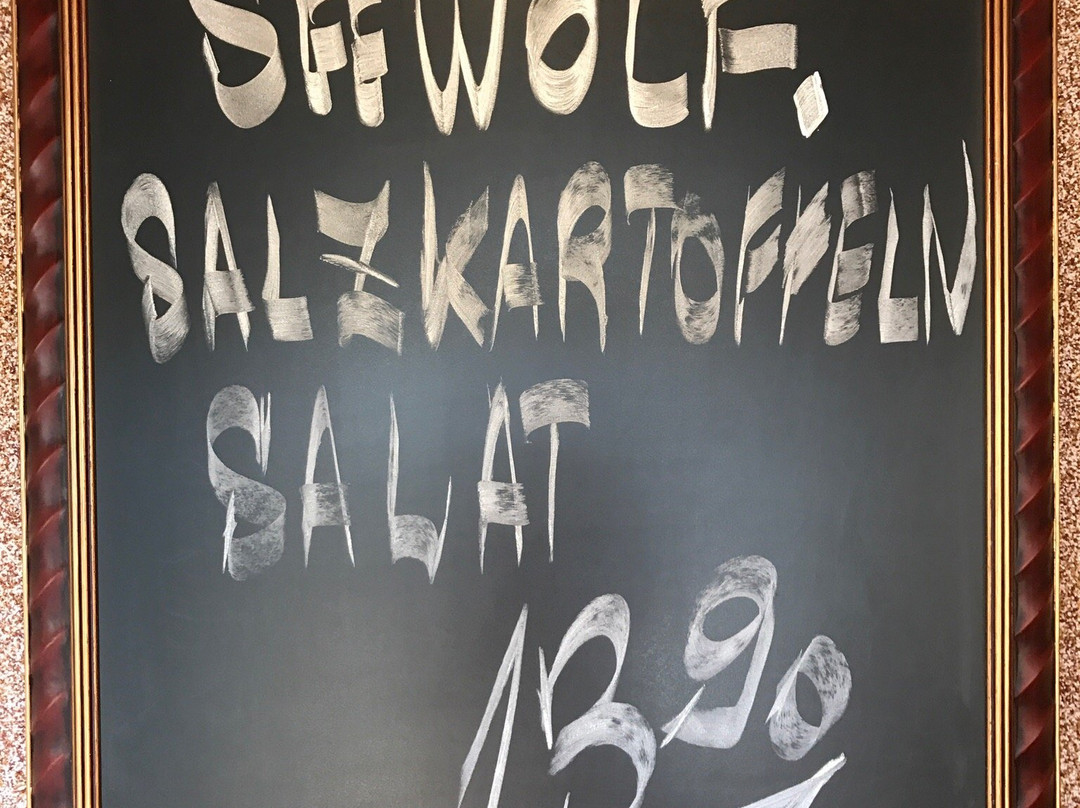 SEEWOLF,
SALZKARTOFFELN
SALAT
13 90